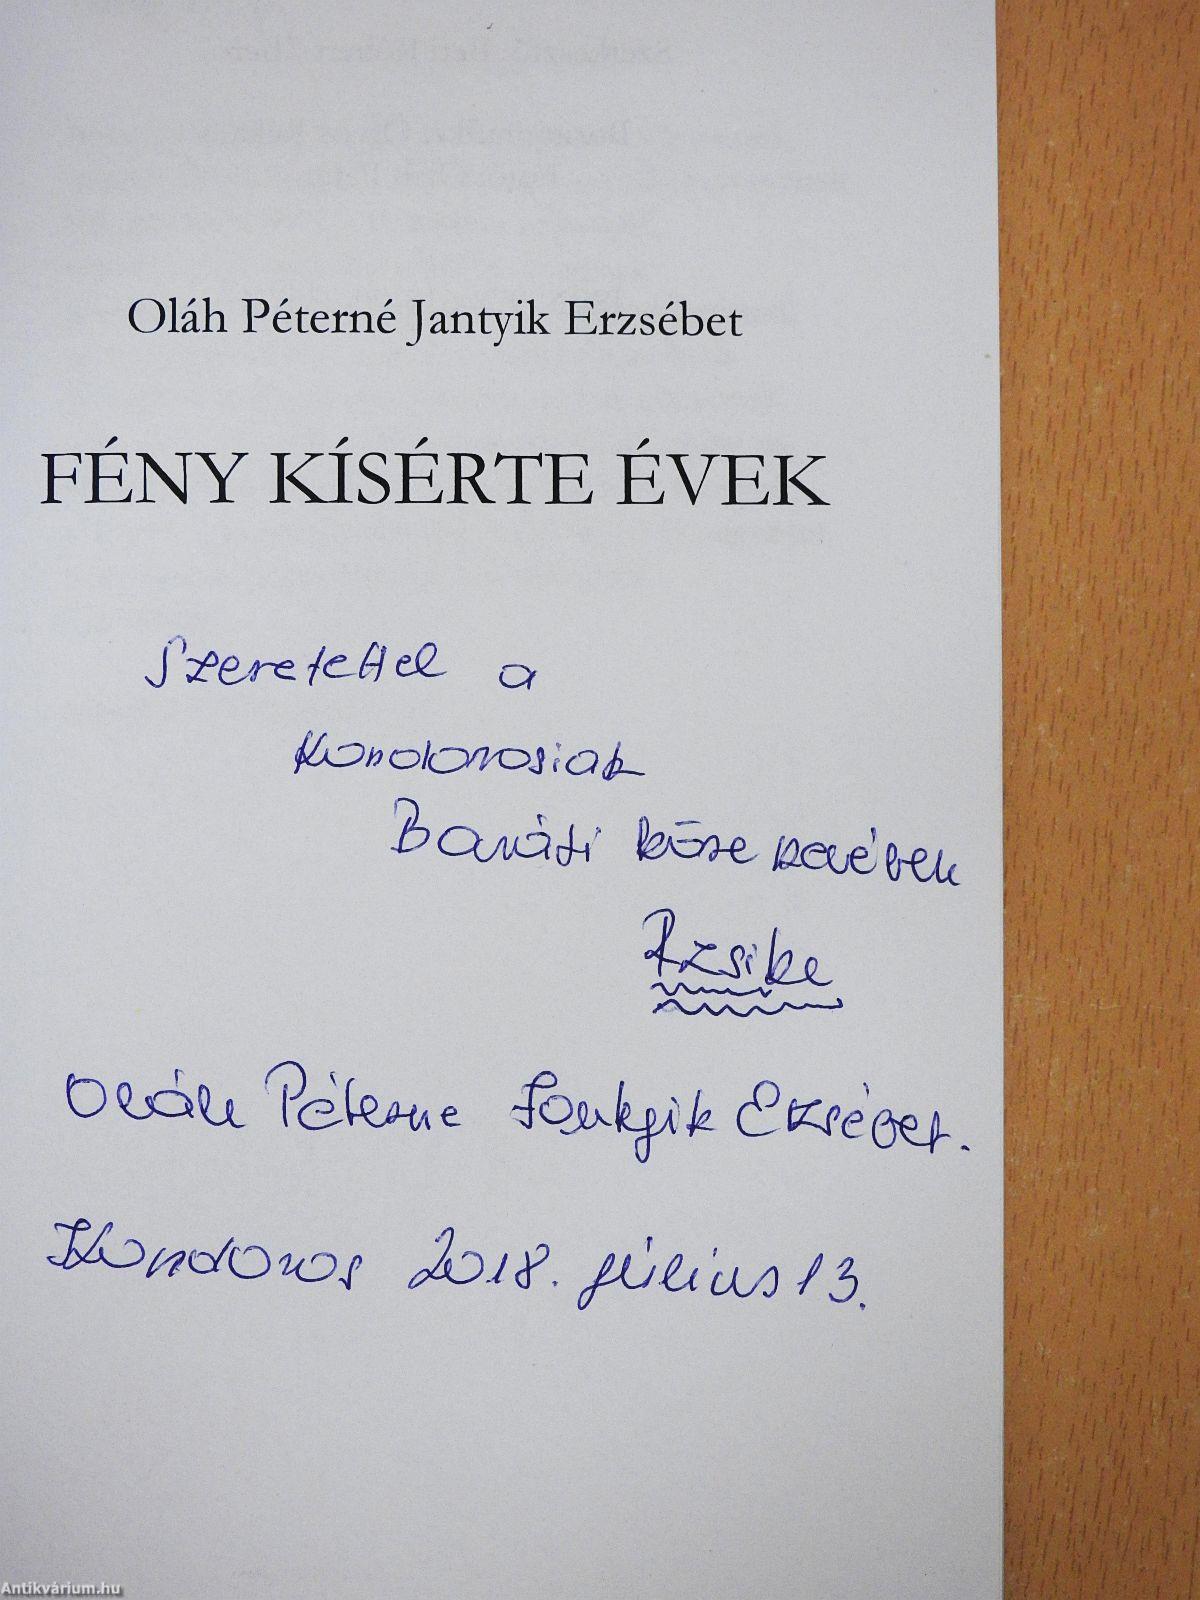 Oláh Péterné Jantyik Erzsébet
FÉNY KÍSÉRTE ÉVEK
Szeretettel a
Kondorosiak
Baráti körének
Rzsike
Oláh Péterné Jantyik Erzsébet.
Kondoros 2018. július 13.
Antikvárium.hu